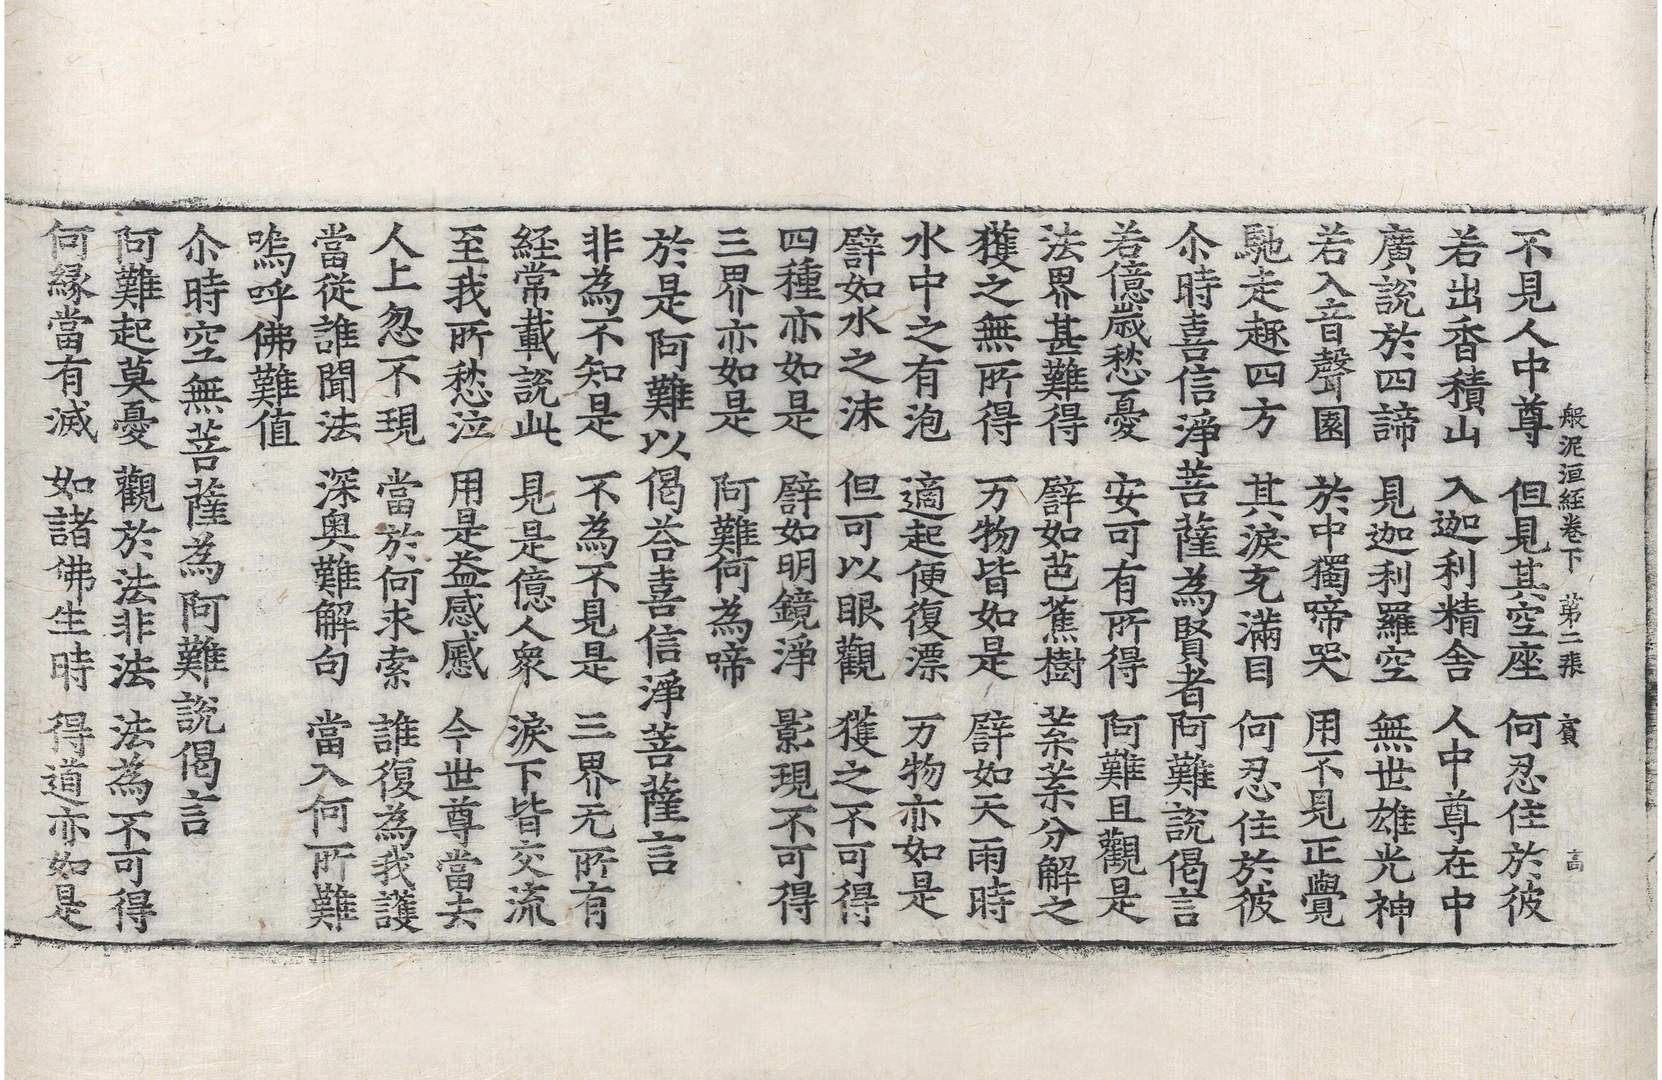 般泥洹経卷下　第二張　賓　高
不見人中尊　但見其空座　何忍住於彼
若出香積山　入迦利精舍　人中尊在中
廣說於四諦　見迦利羅空　無世雄光神
若入音聲園　於中獨啼哭　用不見正覺
馳走趣四方　其淚充滿目　何忍住於彼
尒時喜信淨菩薩為賢者阿難說偈言
若億歲愁憂　安可有所得　阿難且觀是
法界甚難得　譬如芭蕉樹　葉葉分解之
獲之無所得　万物皆如是　譬如天雨時
水中之有泡　適起便復漂　万物亦如是
譬如水之沫　但可以眼觀　獲之不可得
四種亦如是　譬如明鏡淨　影現不可得
三界亦如是　阿難何為啼
於是阿難以偈荅喜信淨菩薩言
非為不知是　不為不見是　三界无所有
経常載說此　見是億人衆　淚下皆交流
至我所愁泣　用是益感慼　今世尊當去
人上忽不現　當於何求索　誰復為我護
當從誰聞法　深奧難解句　當入何所難
嗚呼佛難值
尒時空無菩薩為阿難說偈言
阿難起莫憂　觀於法非法　法為不可得
何緣當有滅　如諸佛生時　得道亦如是